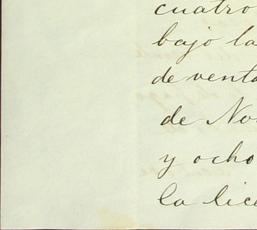 cuatro
bajo la
de venta
de No
y ocho
la lice